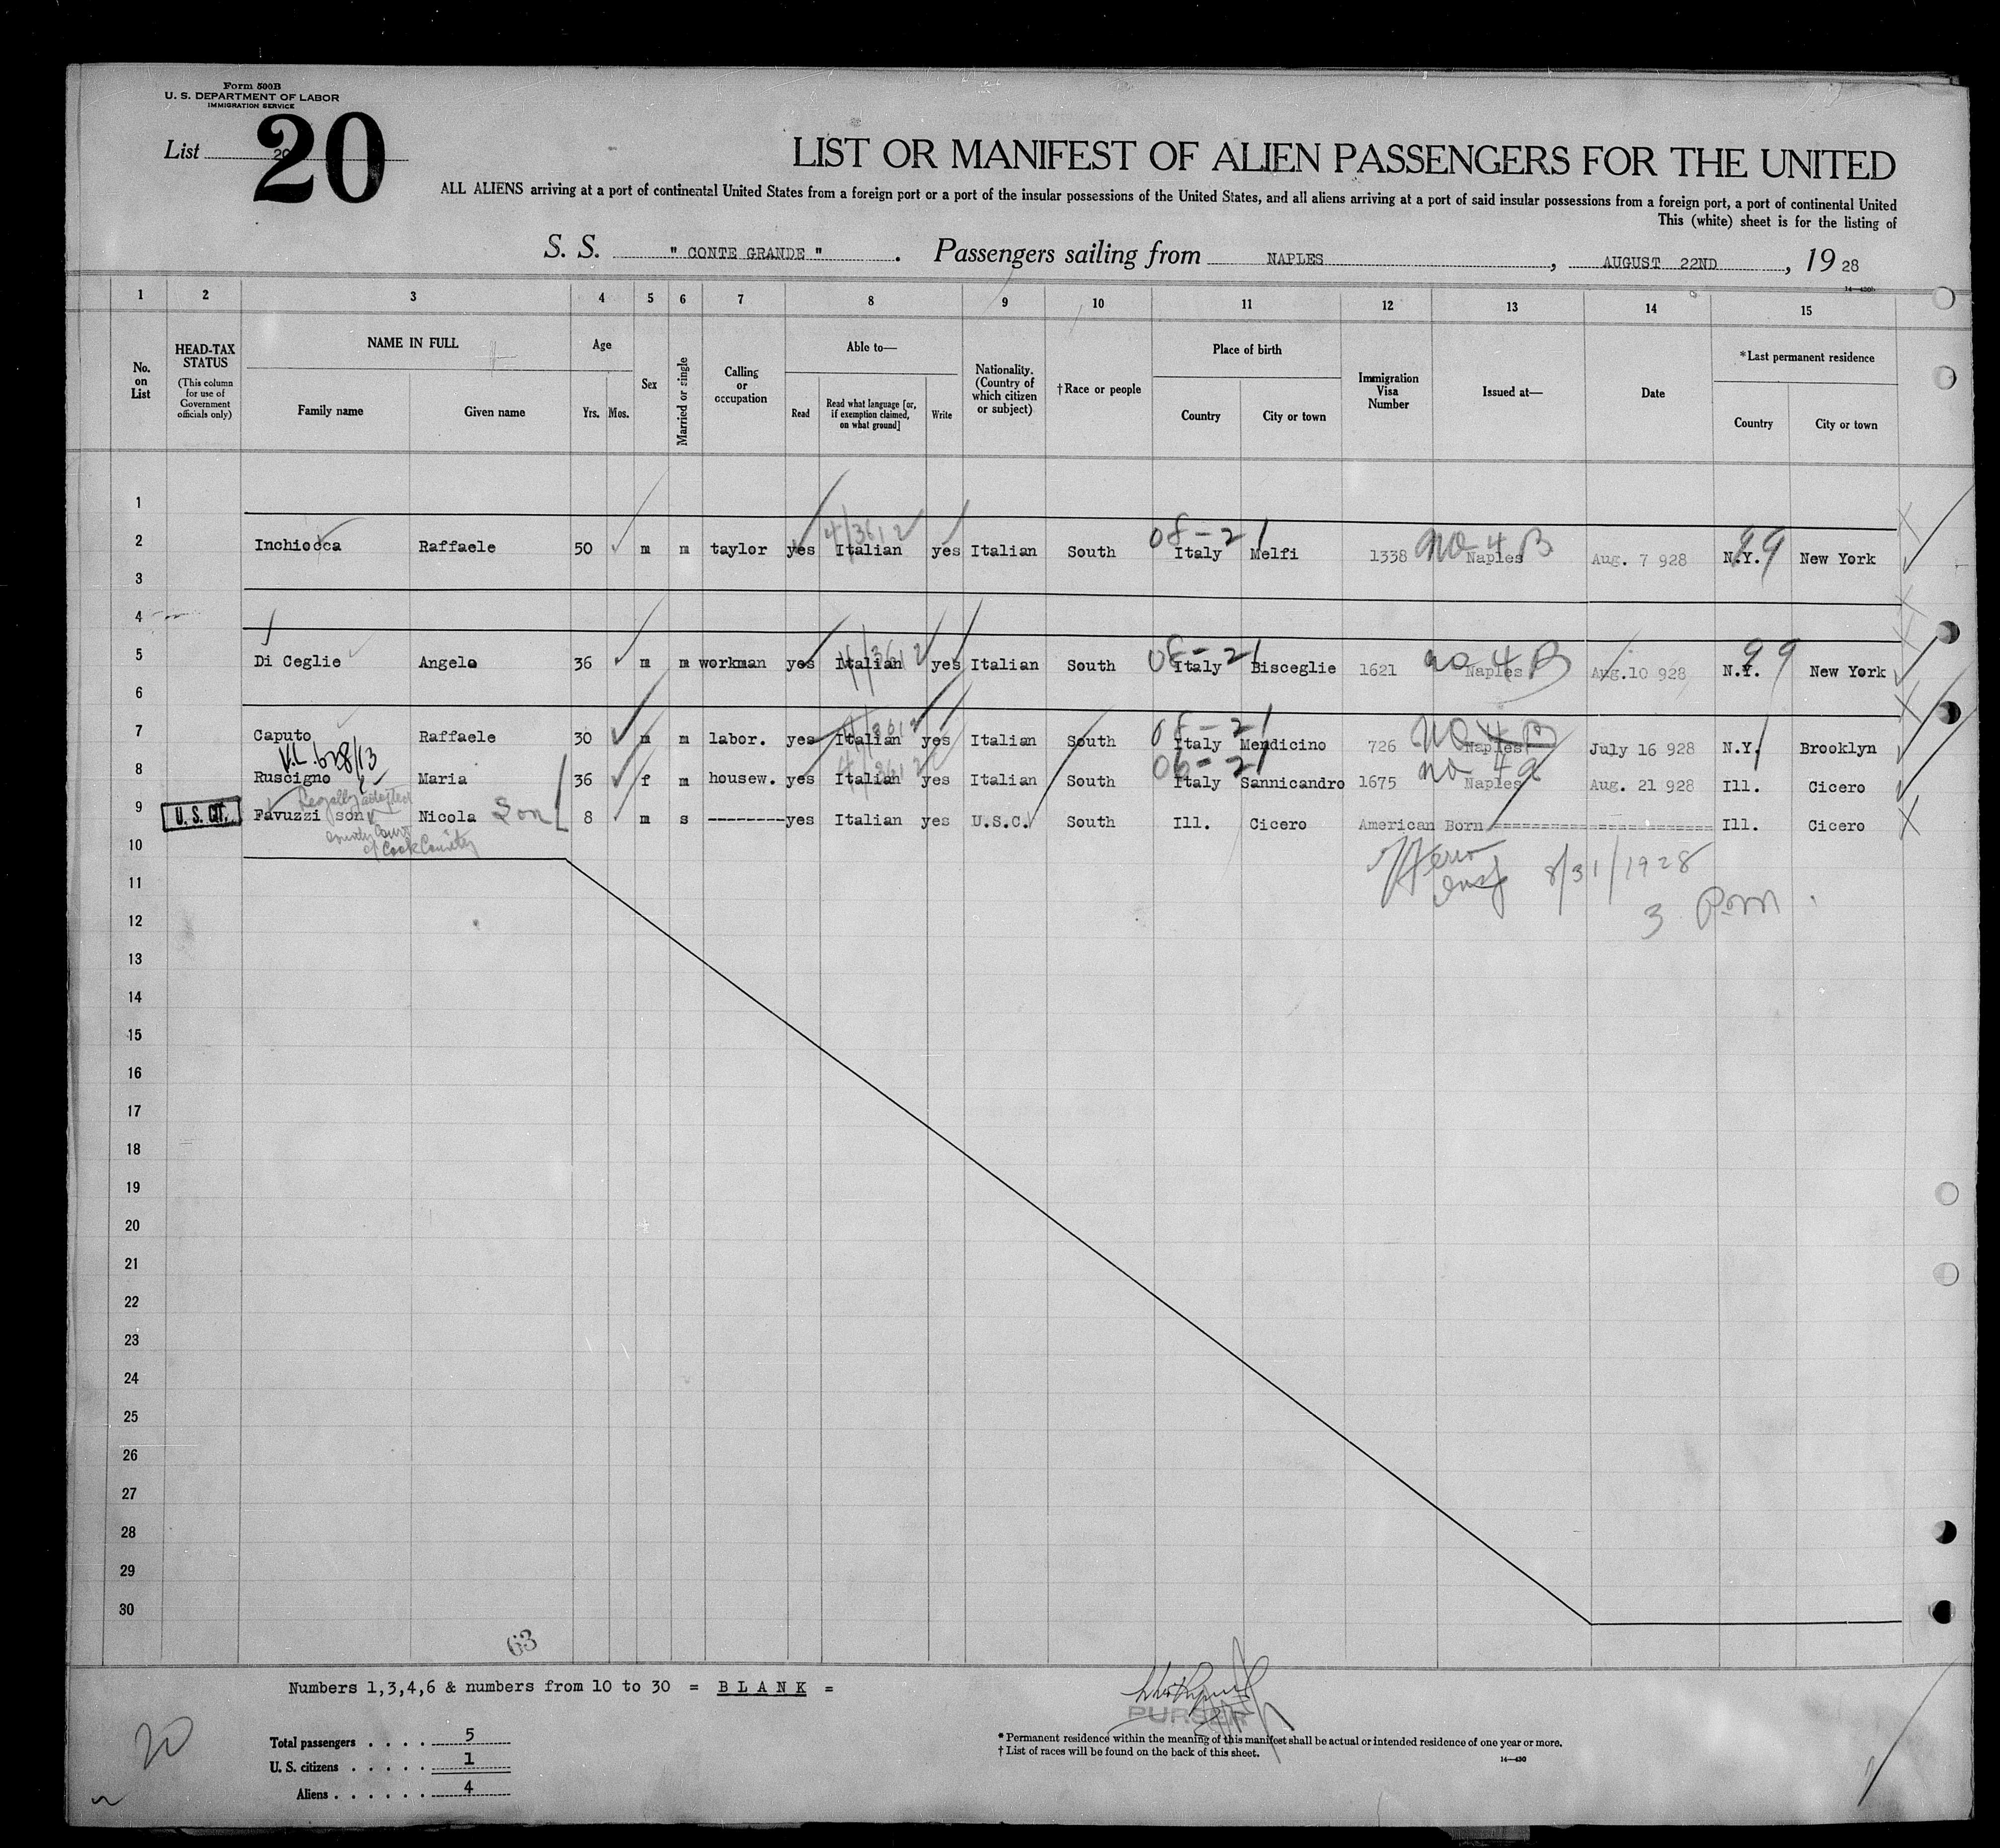 Form 500B
U. S. DEPARTMENT OF LABOR
IMMIGRATION SERVICE
List 20
20
LIST OR MANIFEST OF ALIEN PASSENGERS FOR THE UNITED
ALL ALIENS arriving at a port of continental United States from a foreign port or a port of the insular possessions of the United States, and all aliens arriving at a port of said insular possessions from a foreign port, a port of continental United
This (white) sheet is for the listing of
S. S. " CONTE GRANDE " . Passengers sailing from NAPLES , AUGUST 22ND , 19 28
1 2 3 4 5 6 7 8 9 10 11 12 13 14 15
No. on List
HEAD-TAX STATUS (This column for use of Government officials only)
NAME IN FULL
Family name Given name
Age
Yrs. Mos.
Sex
Married or single
Calling or occupation
Able to—
Read
Read what language [or, if exemption claimed, on what ground]
Write
Nationality. (Country of which citizen or subject)
†Race or people
Place of birth
Country City or town
Immigration Visa Number
Issued at—
Date
*Last permanent residence
Country City or town
1
08-21 NO 4 B 99
2 Inchiocca Raffaele 50 m m taylor yes Italian yes Italian South Italy Melfi 1338 Naples Aug. 7 928 N.Y. New York
3
4
08-21 NO 4 B 99
5 Di Ceglie Angelo 36 m m workman yes Italian yes Italian South Italy Bisceglie 1621 Naples Aug.10 928 N.Y. New York
6
08-21 NO 4 B
7 Caputo Raffaele 30 m m labor. yes Italian yes Italian South Italy Mendicino 726 Naples July 16 928 N.Y. Brooklyn
V.L. 628/13
8 Ruscigno Maria 36 f m housew. yes Italian yes Italian South Italy Sannicandro 1675 Naples Aug. 21 928 Ill. Cicero
Legally adopted
9 U. S. CIT. Favuzzi son Nicola Son 8 m s -------- yes Italian yes U.S.C. South Ill. Cicero American Born ==================== Ill. Cicero
County Court
of Cook County
10
8/31/1928
11
3 Pom.
12
13
14
15
16
17
18
19
20
21
22
23
24
25
26
27
28
29
30
63
Numbers 1,3,4,6 & numbers from 10 to 30 = BLANK =
PURSER
20
Total passengers . . . . 5
U. S. citizens . . . . . 1
Aliens . . . . . . 4
* Permanent residence within the meaning of this manifest shall be actual or intended residence of one year or more.
† List of races will be found on the back of this sheet.
14—430